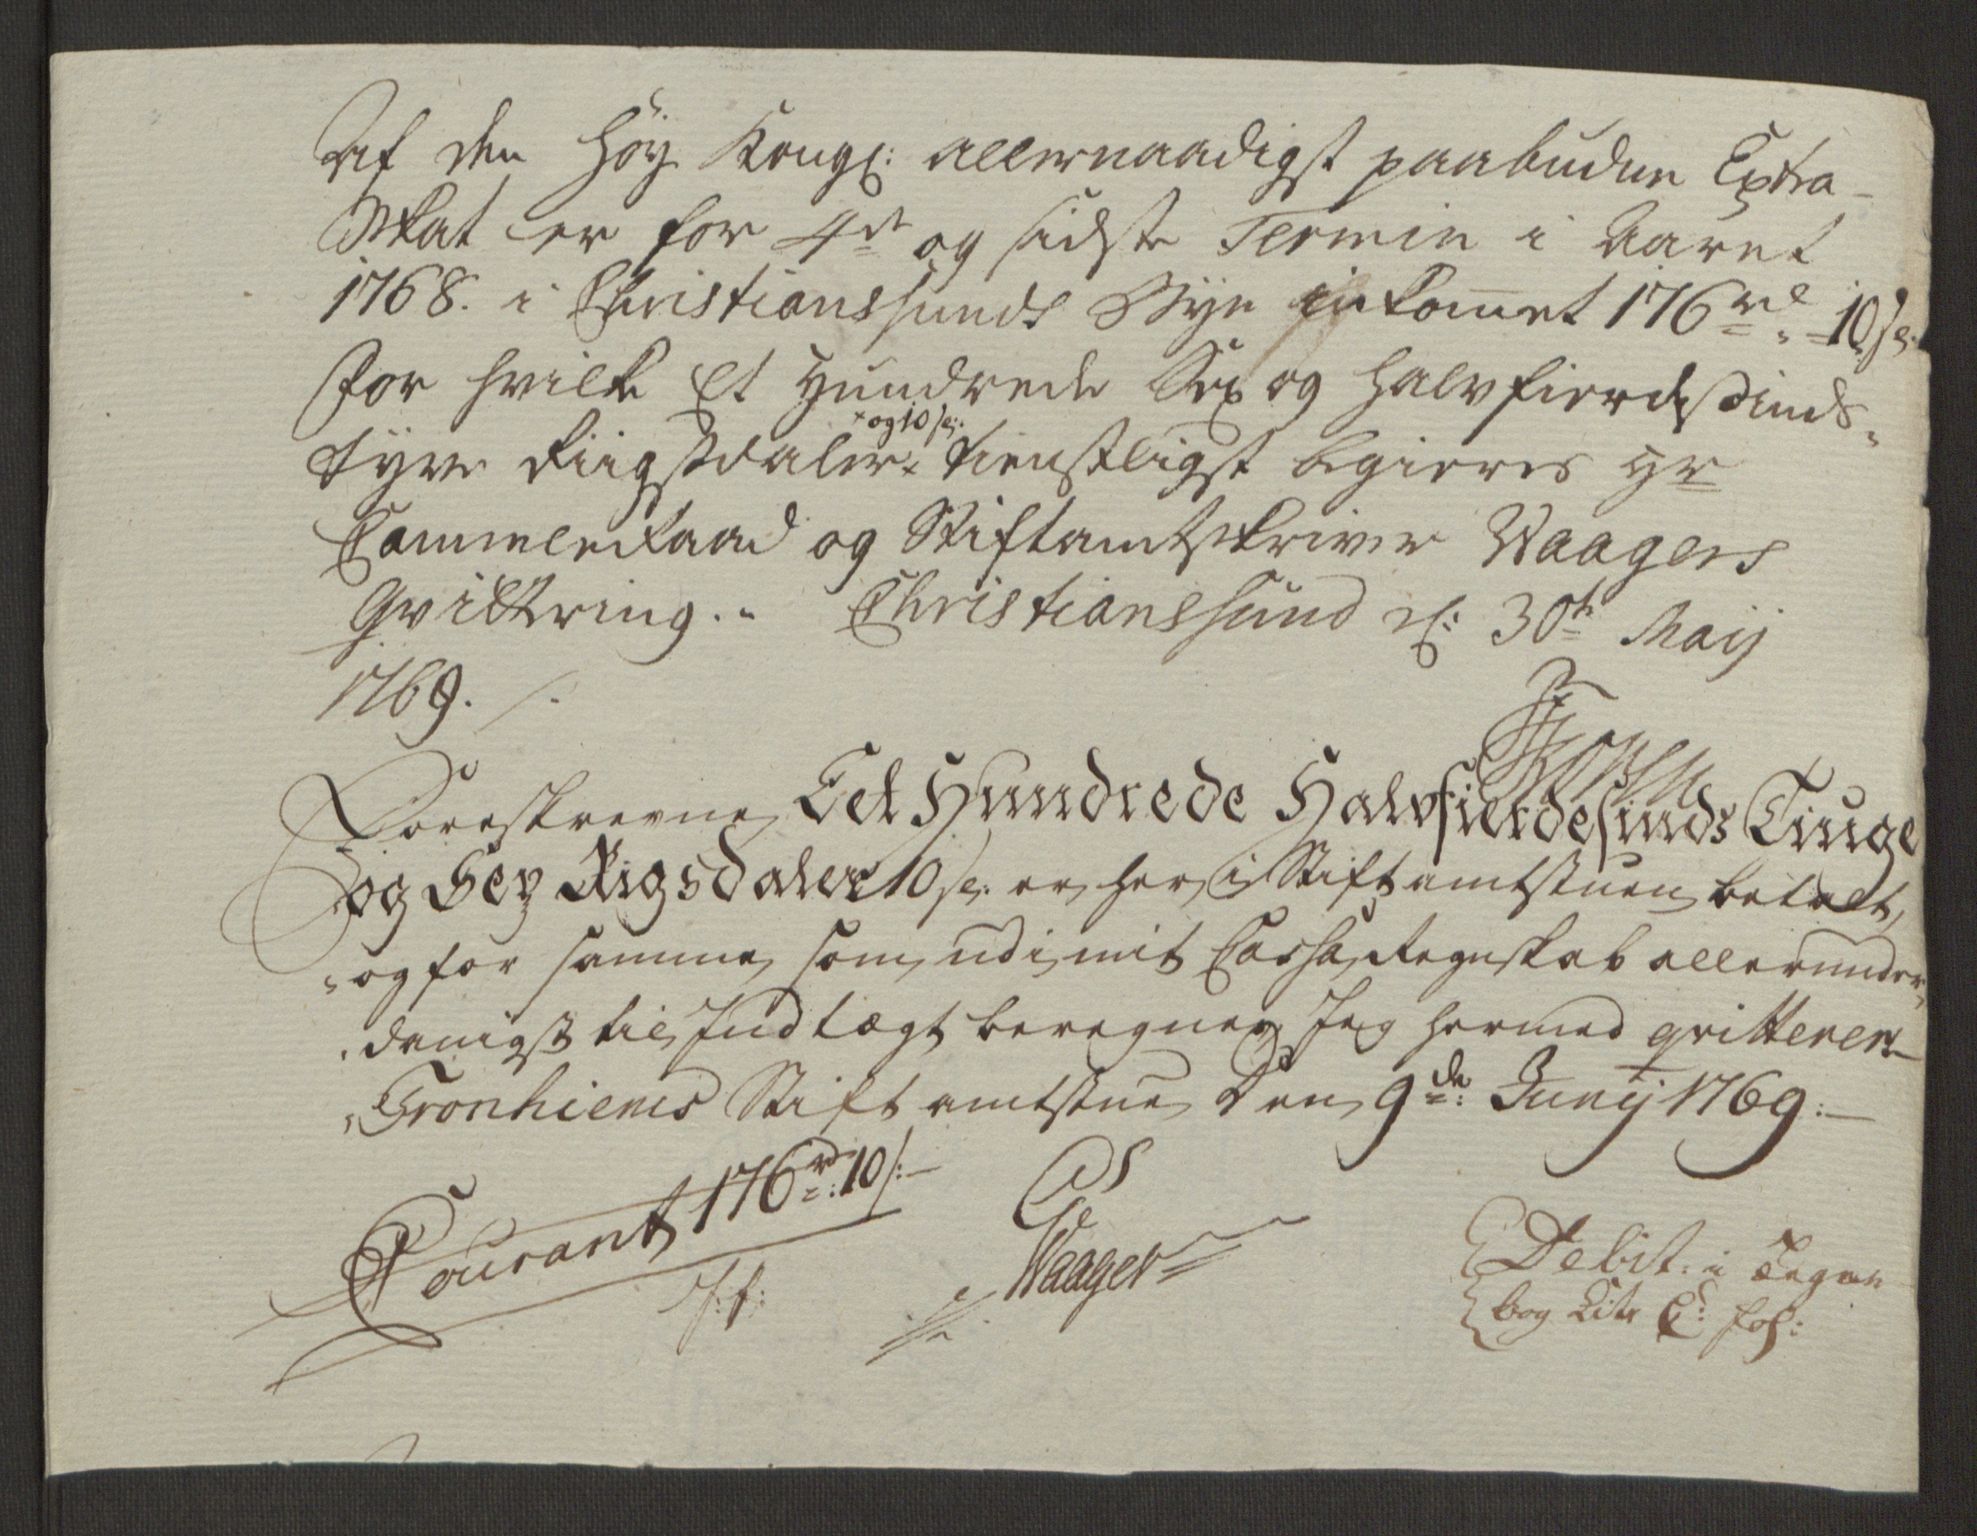 Af den Høy Kongl: allernaadigst paabudne Extra-
Skat er for 4de og sidste Termin i Aaret
1768. i Christianssunds Bye inkomet 176rd. 10s.
For hvilke Et Hundrede Sex og halvfierdesinds-
tyve Riigsdaler × tienstligst begieres Hr
× og 10s:
Cammerraad og Stiftamtskriver Waagers
Qvittering. Christianssund d: 30te Maij
1769.
Foreskrevne Eet Hundrede Halvfierdesinds Tiuge
og Sex Rigsdaler 10s: er her i Stiftamtstuen betalt,
og for samme, som udi mit Cassa Regnskab allerunder-
danigst til Indtægt beregnes, Jeg hermed qvitterer
Tronhiems Stiftamtstue Den 9de: Junij 1769:
Courant 176rd: 10s:
Waager
Debit: i Tegne
bog Litr C: fol: